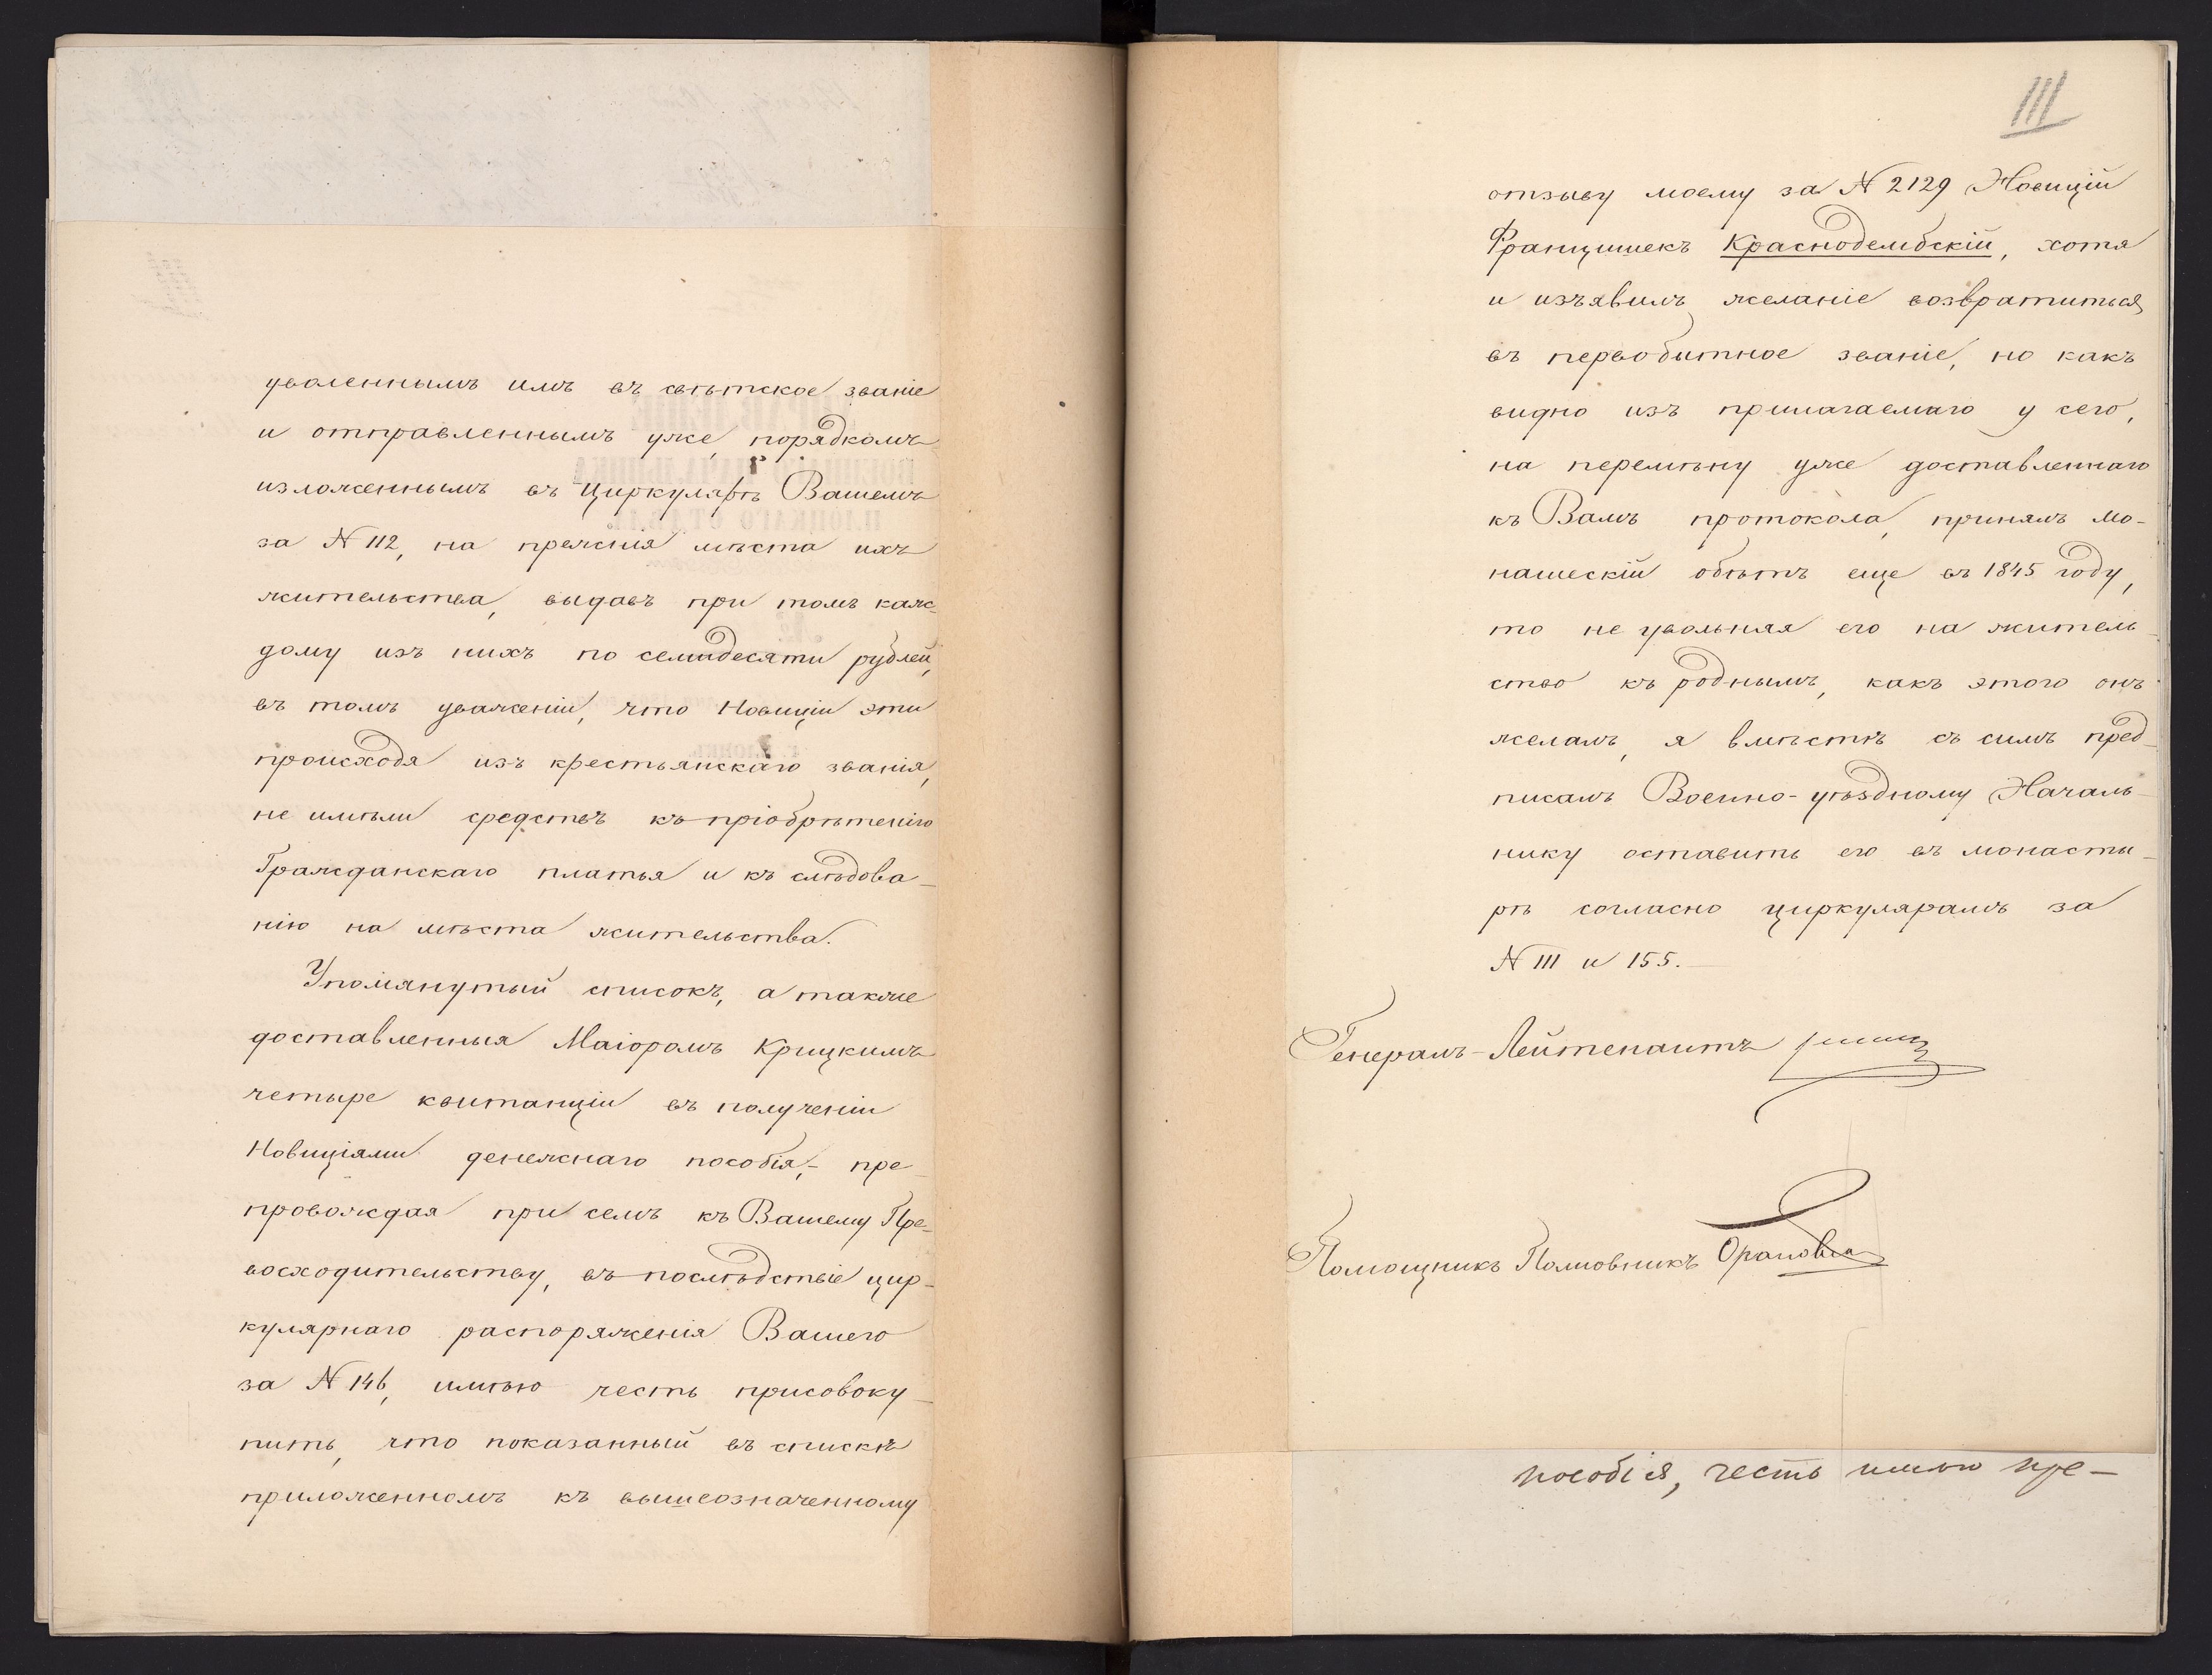 уволеннымъ имъ въ свѣтское званіе
и отправленнымъ уже, порядкомъ
изложеннымъ въ Циркулярѣ Вашемъ
за N 112, на прежнія мѣста ихъ
жительства, выдавъ при томъ каж-
дому изъ нихъ по семидесяти рублей,
въ томъ уваженіи, что Новиціи эти
происходя изъ крестьянскаго званія,
не имѣли средствъ къ пріобрѣтенію
Гражданскаго платья и къ слѣдова-
нію на мѣста жительства.
Упомянутый списокъ, а также
доставленныя Маіоромъ Крицкимъ
четыре квитанціи въ полученіи
Новиціями денежнаго пособія,- пре-
провождая при семъ къ Вашему Пре-
восходительству, въ послѣдствіе цир-
кулярнаго распоряженія Вашего
за N 146, имѣю честь присовоку-
пить, что показанный въ спискѣ
приложенномъ къ вышеозначенному
III
отзыву моему за N 2129 Новицій
Францишекъ Краснодембскій, хотя
и изъявилъ желаніе возвратиться
въ первобитное званіе, но какъ
видно изъ прилагаемаго у сего,
на перемѣну уже доставленнаго
къ Вамъ протокола, принялъ мо-
нашескій обѣтъ еще въ 1845 году,
то не увольняя его на житель-
ство къ роднымъ, какъ этого онъ
желалъ, я вмѣстѣ съ симъ пред-
писалъ Военно-уѣздному Началь-
нику оставить его въ монасты-
рѣ согласно циркулярамъ за
N 111 и 155.
Генералъ-Лейтенантъ
Помощникъ Полковникъ
пособія, честь имѣю пре-